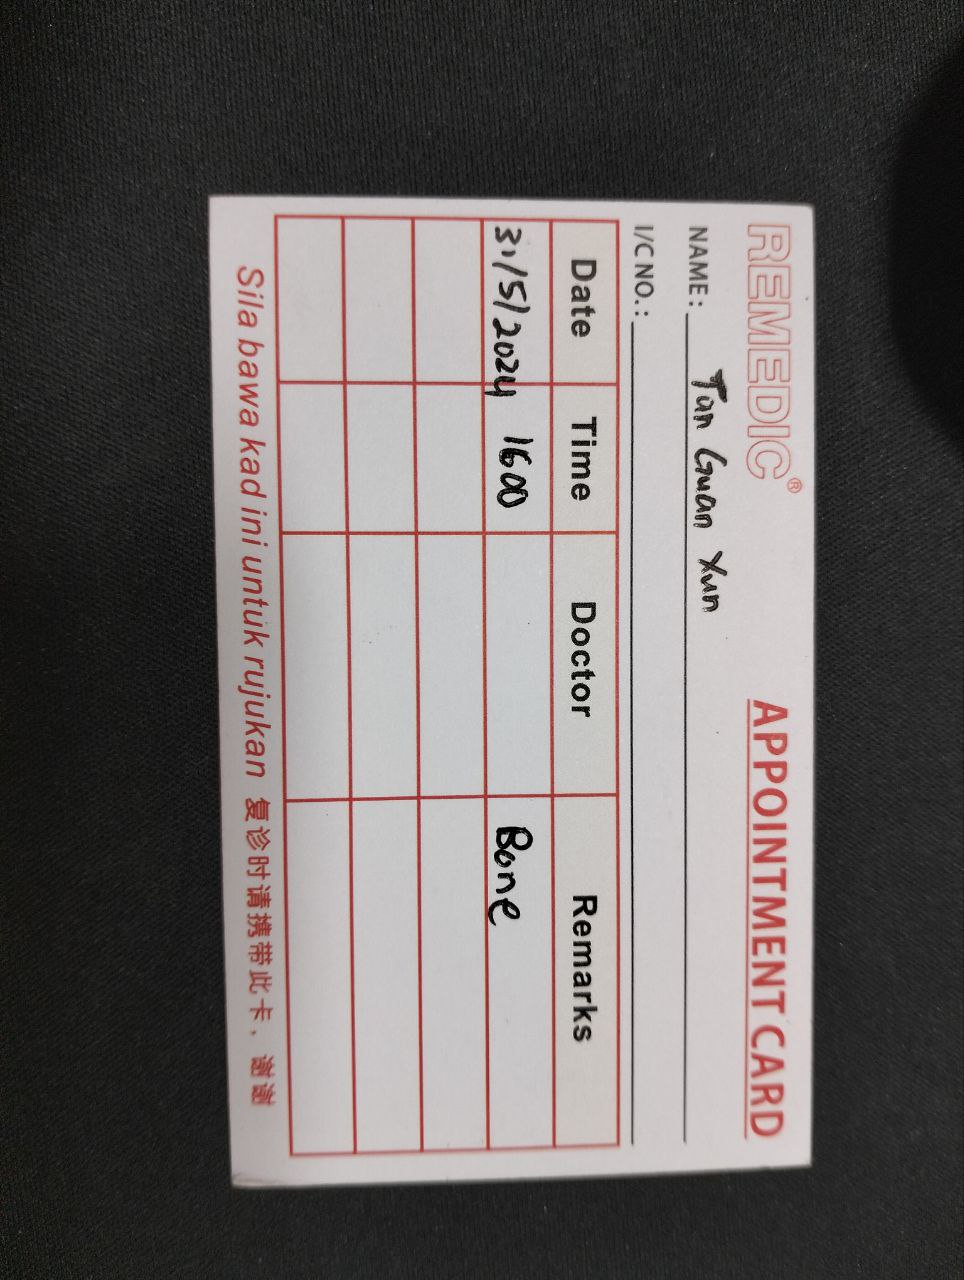 REMEDIC®
APPOINTMENT CARD
NAME: Tan Guan Xun
I/C NO.:
Date Time Doctor Remarks
31/5/2024 1600 Bone
Sila bawa kad ini untuk rujukan 复诊时请携带此卡．谢谢